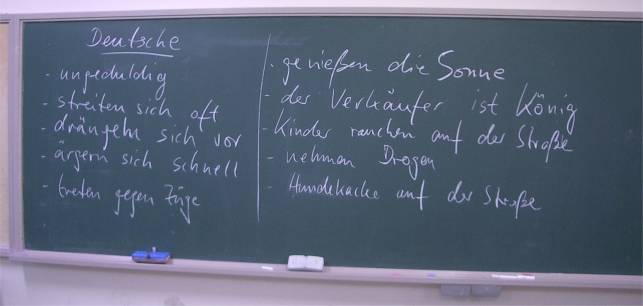 Deutsche
- ungeduldig
- streiten sich oft
- drängeln sich vor
- ärgern sich schnell
- treten gegen Züge
- genießen die Sonne
- der Verkäufer ist König
- Kinder rauchen auf der Straße
- nehmen Drogen
- Hundekacke auf der Straße